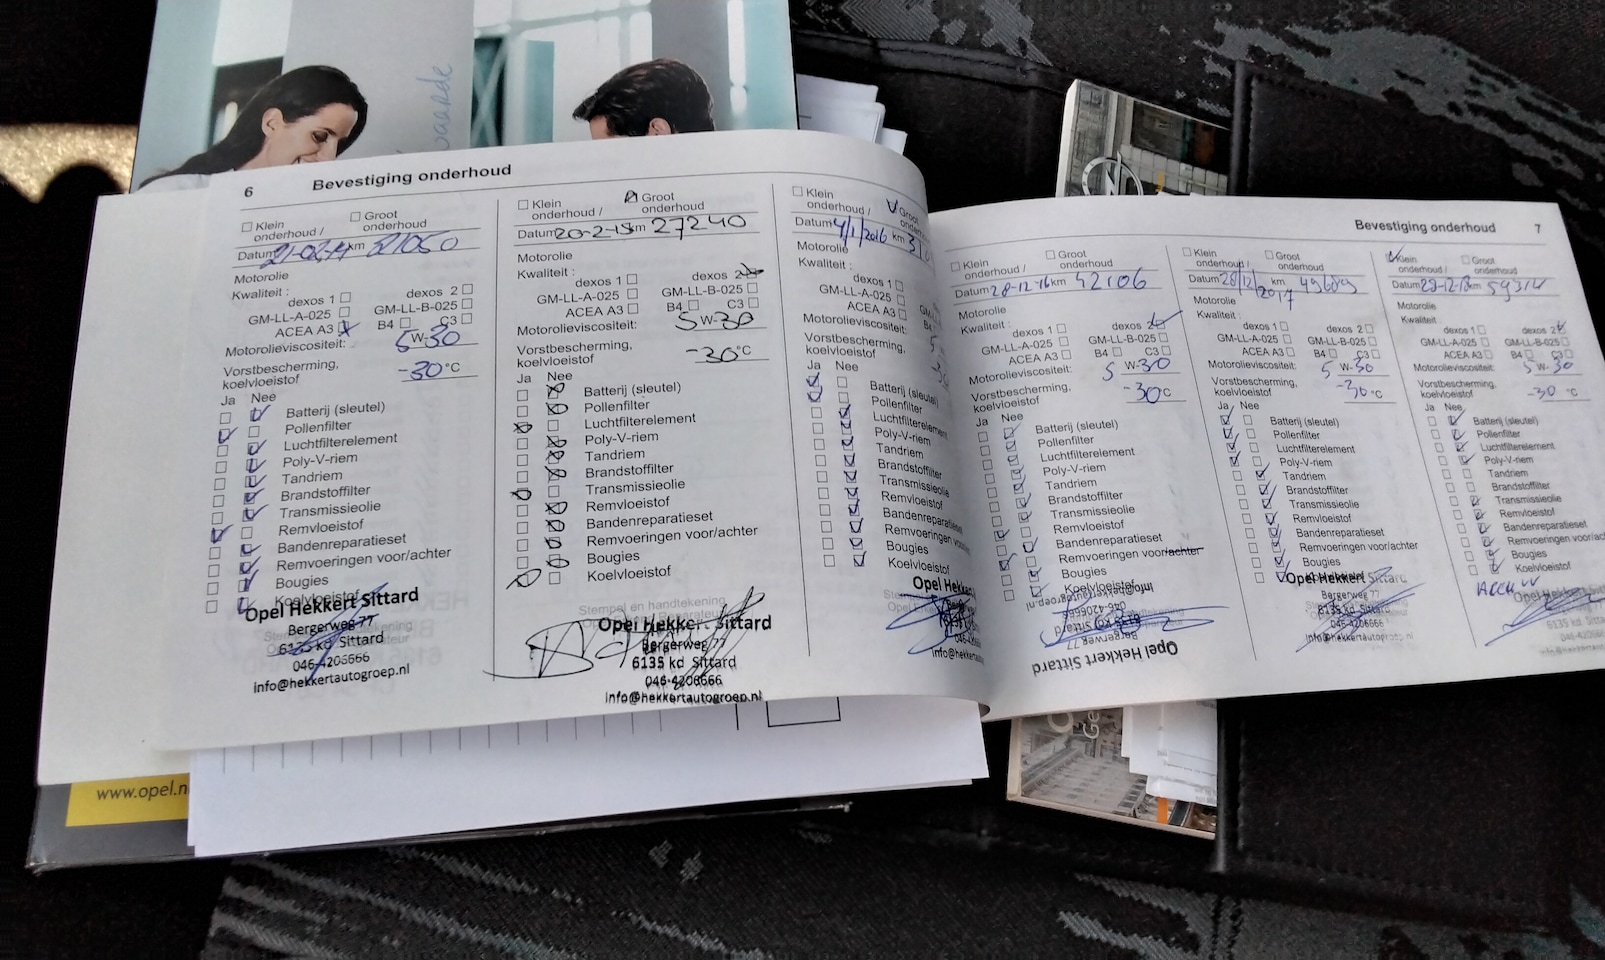 waarde
6 Bevestiging onderhoud
Klein onderhoud / Groot onderhoud
Datum 21-02-14 km
Motorolie
Kwaliteit :
dexos 1 dexos 2
GM-LL-A-025 GM-LL-B-025
ACEA A3 B4 C3
Motorolieviscositeit: 5 W-30
Vorstbescherming, koelvloeistof -30 °C
Ja Nee
Batterij (sleutel)
Pollenfilter
Luchtfilterelement
Poly-V-riem
Tandriem
Brandstoffilter
Transmissieolie
Remvloeistof
Bandenreparatieset
Remvoeringen voor/achter
Bougies
Koelvloeistof
Opel Hekkert Sittard
Bergerweg 77
6135 kd Sittard
046-4206666
info@hekkertautogroep.nl
Klein onderhoud / Groot onderhoud
Datum 20-2-15 km 27240
Motorolie
Kwaliteit :
dexos 1 dexos 2
GM-LL-A-025 GM-LL-B-025
ACEA A3 B4 C3
Motorolieviscositeit: 5 W-30
Vorstbescherming, koelvloeistof -30 °C
Ja Nee
Batterij (sleutel)
Pollenfilter
Luchtfilterelement
Poly-V-riem
Tandriem
Brandstoffilter
Transmissieolie
Remvloeistof
Bandenreparatieset
Remvoeringen voor/achter
Bougies
Koelvloeistof
Stempel en handtekening
Opel Hekkert Sittard
Bergerweg 77
6135 kd Sittard
046-4206666
info@hekkertautogroep.nl
Klein onderhoud / Groot
Datum 4/1/2016 km
Motorolie
Kwaliteit :
dexos 1
GM-LL-A-025
ACEA A3 B4
Motorolieviscositeit:
Vorstbescherming, koelvloeistof
Ja Nee
Batterij (sleutel)
Pollenfilter
Luchtfilterelement
Poly-V-riem
Tandriem
Brandstoffilter
Transmissieolie
Remvloeistof
Bandenreparatieset
Remvoeringen
Bougies
Koelvloeistof
Opel Hekkert
Bevestiging onderhoud 7
Klein onderhoud / Groot onderhoud
Datum 28-12-16 km 42106
Motorolie
Kwaliteit :
dexos 1 dexos 2
GM-LL-A-025 GM-LL-B-025
ACEA A3 B4 C3
Motorolieviscositeit: 5 W-30
Vorstbescherming, koelvloeistof -30 °C
Ja Nee
Batterij (sleutel)
Pollenfilter
Luchtfilterelement
Poly-V-riem
Tandriem
Brandstoffilter
Transmissieolie
Remvloeistof
Bandenreparatieset
Remvoeringen voor/achter
Bougies
Koelvloeistof
Opel Hekkert Sittard
Bergerweg 77
Klein onderhoud / Groot onderhoud
Datum 28/12/2017 km 49689
Motorolie
Kwaliteit :
dexos 1 dexos 2
GM-LL-A-025 GM-LL-B-025
ACEA A3 B4 C3
Motorolieviscositeit: 5 W-30
Vorstbescherming, koelvloeistof -30 °C
Ja Nee
Batterij (sleutel)
Pollenfilter
Luchtfilterelement
Poly-V-riem
Tandriem
Brandstoffilter
Transmissieolie
Remvloeistof
Bandenreparatieset
Remvoeringen voor/achter
Bougies
Opel Hekkert Sittard
Bergerweg 77
6135 kd Sittard
046-4206666
info@hekkertautogroep.nl
Klein onderhoud / Groot onderhoud
Datum 28-12-18 km
Motorolie
Kwaliteit :
dexos 1 dexos 2
GM-LL-A-025 GM-LL-B-025
ACEA A3 B4 C3
Motorolieviscositeit: 5 W-30
Vorstbescherming, koelvloeistof -30 °C
Ja Nee
Batterij (sleutel)
Pollenfilter
Luchtfilterelement
Poly-V-riem
Tandriem
Brandstoffilter
Transmissieolie
Remvloeistof
Bandenreparatieset
Remvoeringen voor/
Bougies
Koelvloeistof
Opel Hekkert
Bergerweg 77
6135 kd Sittard
046-4206666
www.opel.n